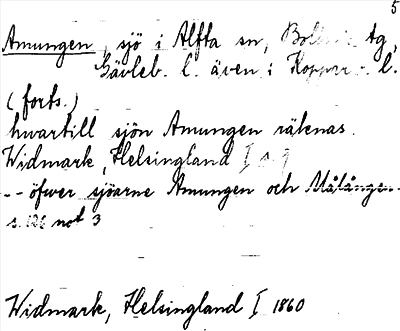 5
Amungen, sjö i Alfta sn, tg,
Gävleb. l. även i Kopparb. l.
(forts.)
hwartill sjön Amungen räknas.
Widmark, Helsingland I s. 9
-- öfwer sjöarne Amungen och Målången--
s. 126 not 3
Widmark, Helsingland I 1860